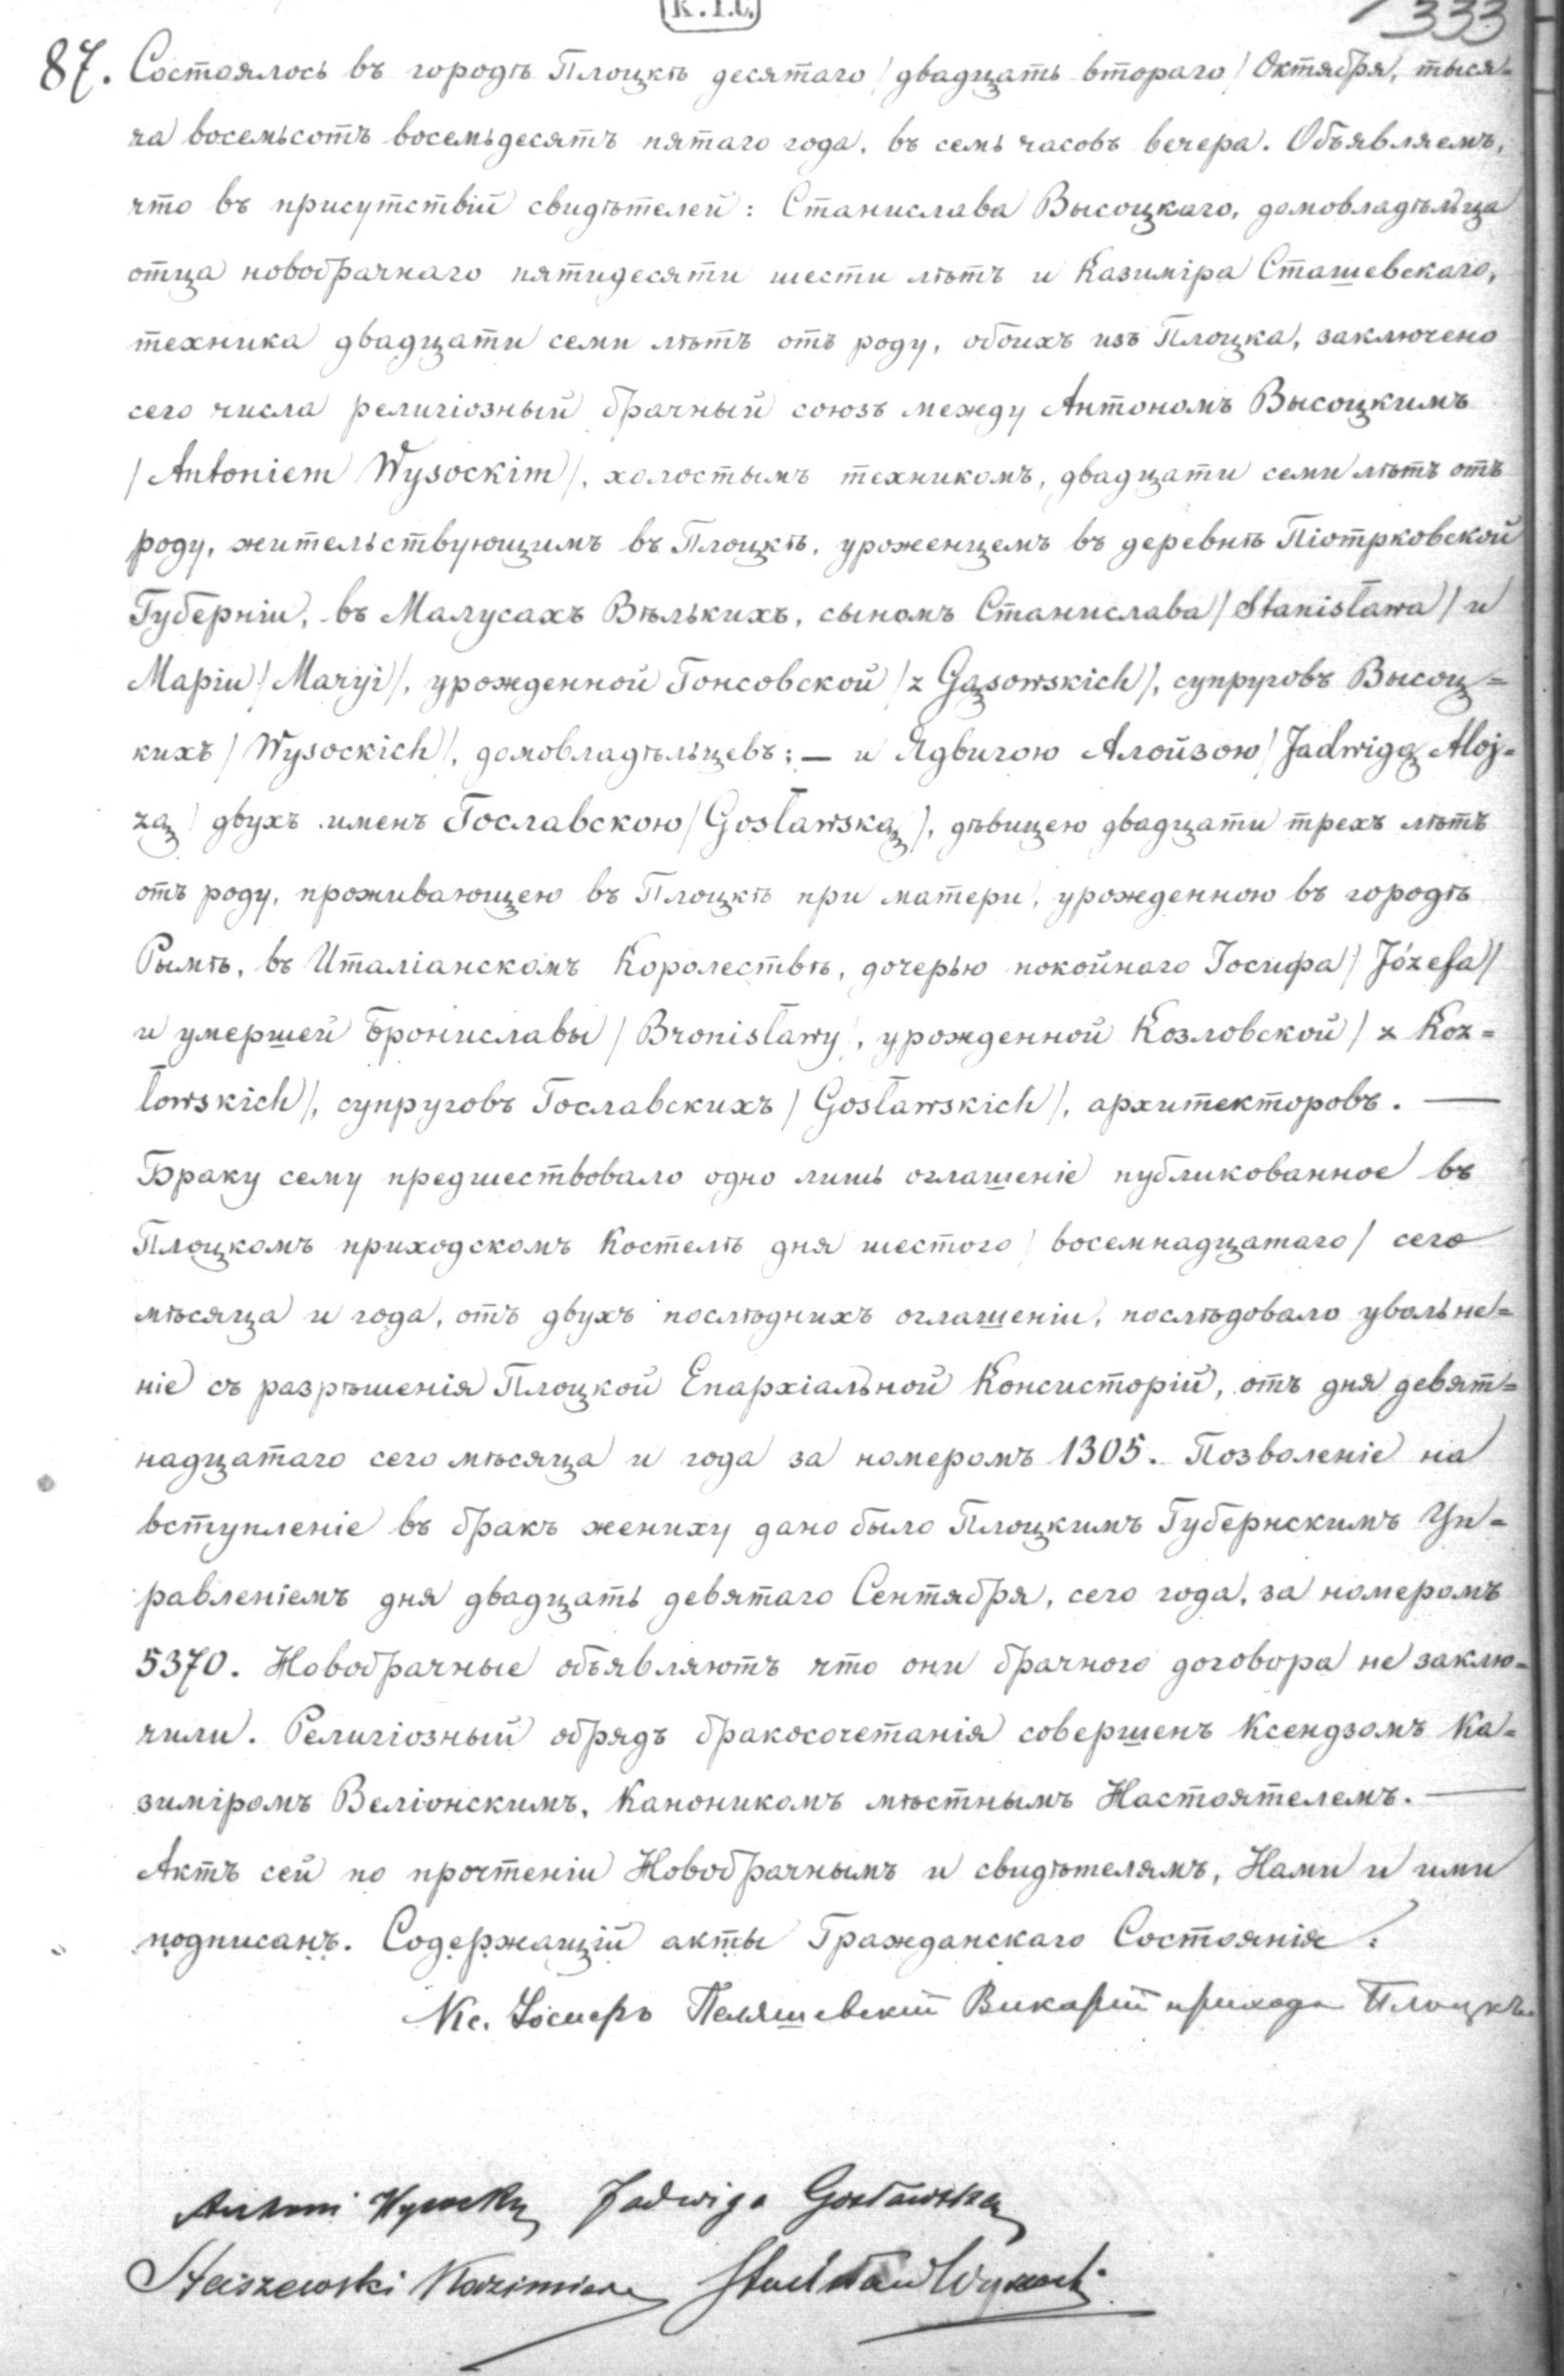 К.І.С.
333
87. Состоялось въ городѣ Плоцкѣ десятаго /двадцать втораго/ Октября, тыся=
ча восемьсотъ восемьдесятъ пятаго года, въ семь часовъ вечера. Объявляемъ,
что въ присутствій свидѣтелей: Станислава Высоцкаго, домовладѣльца
отца новобрачнаго пятидесяти шести лѣтъ и Казиміра Сташевскаго,
техника двадцати семи лѣтъ отъ роду, обоихъ изъ Плоцка, заключено
сего числа религіозный брачный союзъ между Антономъ Высоцкимъ
/Antoniem Wysockim/, холостымъ техникомъ, двадцати семи лѣтъ отъ
роду, жительствующимъ въ Плоцкѣ, уроженцемъ въ деревнѣ Піотрковской
Губерніи, въ Малусахъ Вѣлькихъ, сыномъ Станислава /Stanisława/ и
Маріи /Maryi/, урожденной Гонсовской /z Gąsowskich/, супруговъ Высоц=
кихъ /Wysockich/, домовладѣльцевъ; — и Ядвигою Алойзою /Jadwigą Aloj=
zą/ двухъ именъ Гославскою /Gosławską/, дѣвицею двадцати трехъ лѣтъ
отъ роду, проживающею въ Плоцкѣ при матери, урожденною въ городѣ
Рымѣ, въ Италіанскомъ Королествѣ, дочерью покойнаго Іосифа /Józefa/
и умершей Брониславы /Bronisławy/, урожденной Козловской /z Koz=
łowskich/, супруговъ Гославскихъ /Gosławskich/, архитекторовъ. —
Браку сему предшествовало одно лишь оглашеніе публикованное въ
Плоцкомъ приходскомъ Костелѣ дня шестого /восемнадцатаго/ сего
мѣсяца и года, отъ двухъ послѣднихъ оглашеніи, послѣдовало увольне=
ніе съ разрѣшенія Плоцкой Епархіальной Консисторій, отъ дня девят=
надцатаго сего мѣсяца и года за номеромъ 1305. Позволеніе на
вступленіе въ бракъ жениху дано было Плоцкимъ Губернскимъ Уп=
равленіемъ дня двадцать девятаго Сентября, сего года, за номеромъ
5370. Новобрачные объявляютъ что они брачного договора не заклю=
чили. Религіозный обрядъ бракосочетанія совершенъ Ксендзомъ Ка=
зиміромъ Веліонскимъ, Каноникомъ мѣстнымъ Настоятелемъ. —
Актъ сей по прочтеніи Новобрачнымъ и свидѣтелямъ, Нами и ими
подписанъ. Содержащій акты Гражданскаго Состоянія:
Кс. Викарій прихода Плоцкъ.
Antoni Wysocki Jadwiga Gosławska
Staszewski Kazimierz Stanisław Wysocki